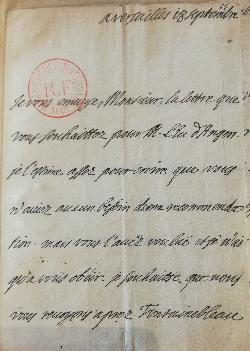 a versailles 18 septembre
R.F.
Je vous envoye, Monsieur, la lettre que
vous souhaittez pour M. L'Ev d'
je l'estime assez pour croire que vous
n'aviez aucun besoin de ma recommenda
tion mais vous l'avez voulüe et je n'ai
qu'a vous obeir. je souhaitte que nous
vous revoyons apres Fontainebleau